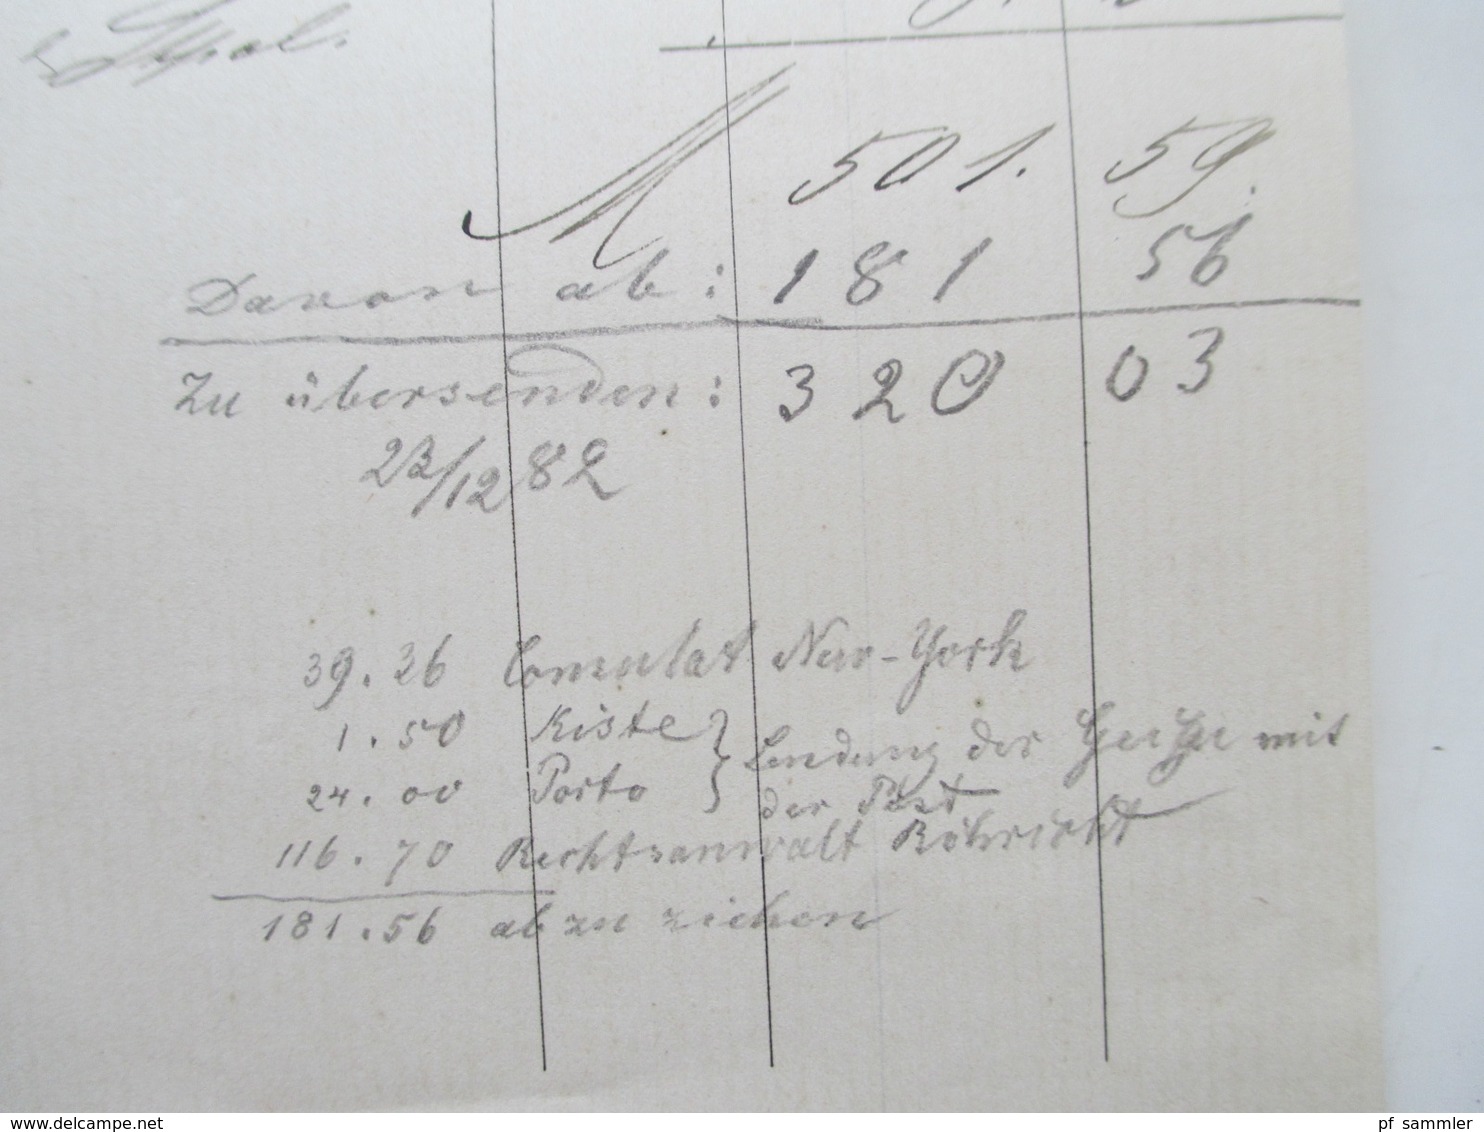 M 501. 59.
Davon ab: 181 56
Zu übersenden: 320 03
23/12 82
39.36 Consulat New-York
1.50 Kiste } Sendung der Geige mit
24.00 Porto } der Post
116.70 Rechtsanwalt Röhricht
181.56 ab zu ziehen
www.delcampe.net
pf_sammler